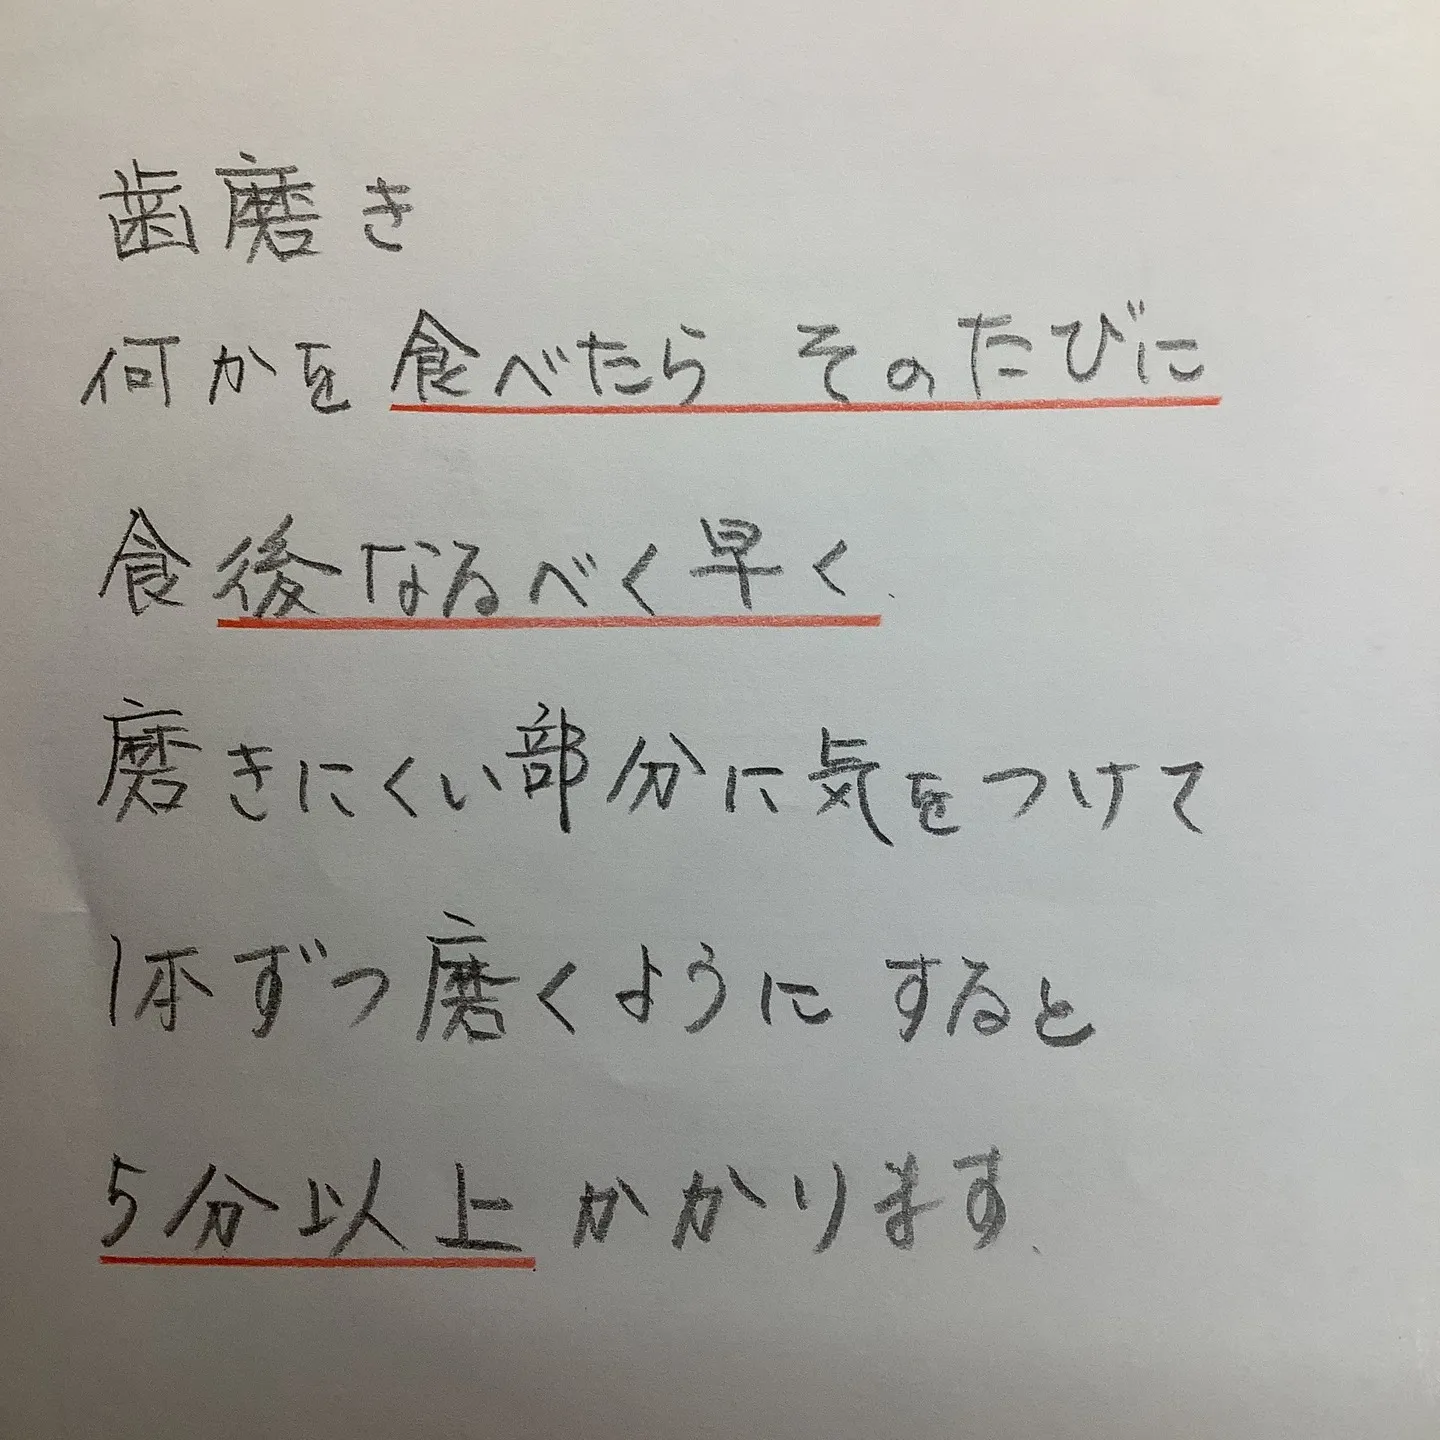 歯磨き
何かを食べたら そのたびに
食後なるべく早く
磨きにくい部分に気をつけて
1本ずつ磨くようにすると
5分以上かかります.